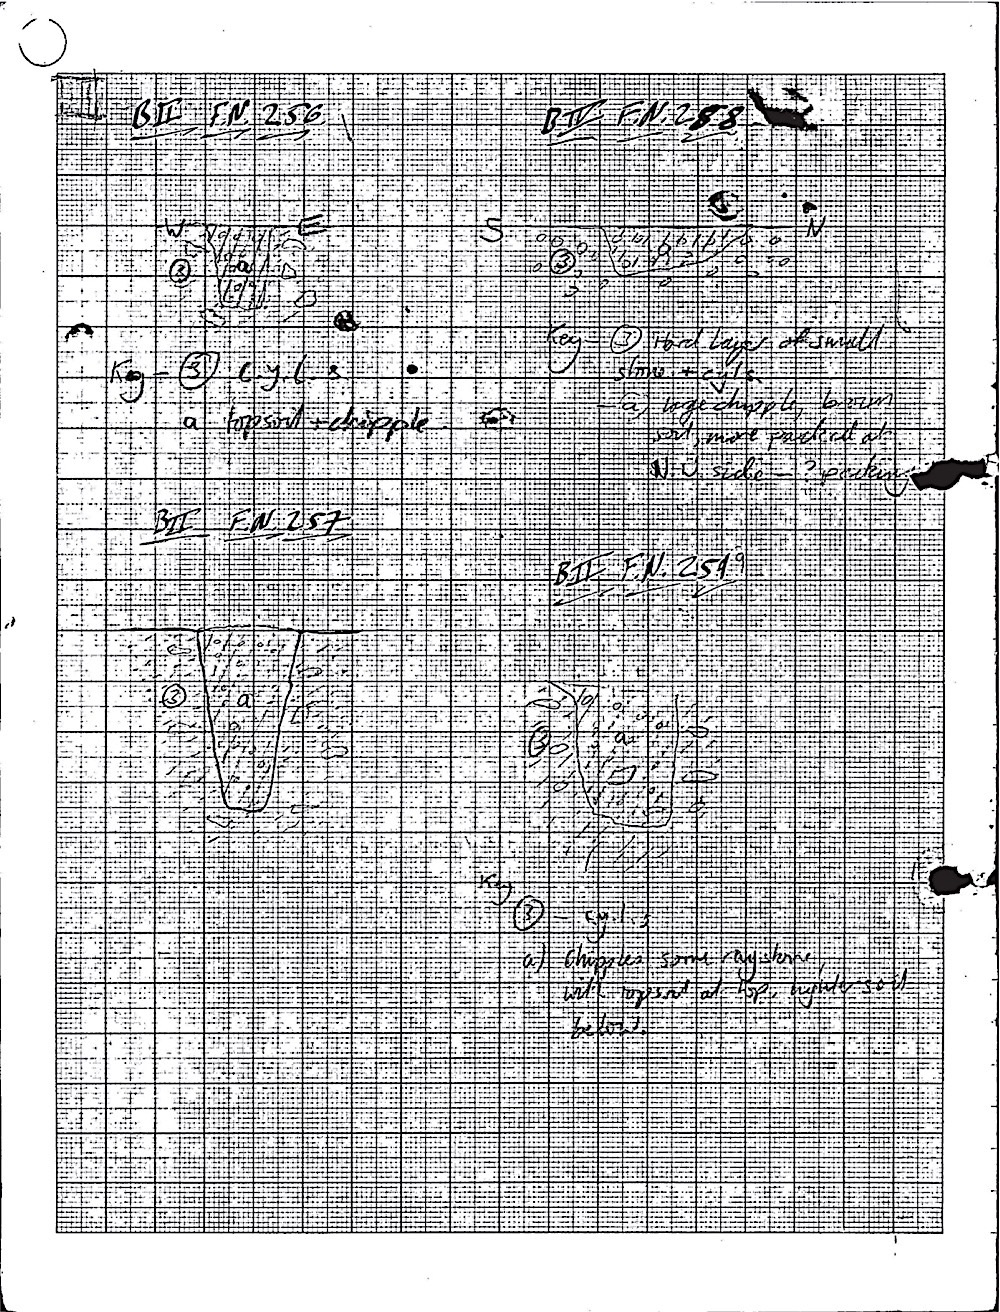 BII F.N. 256
W E
③ a
Key - ③ c.y.l.s
a topsoil + chipple
BII F.N. 257
③ a
BII F.N. 288
S N
③
Key - ③ Hard layer of small
stone + cyls
- a) large chipple, brown
soil, more packed at
N.W. side - ? packing
BII F.N. 259
③ a
Key
③ - cyl.s
a) Chipples some ragstone,
with topsoil at top, lighter soil
below.